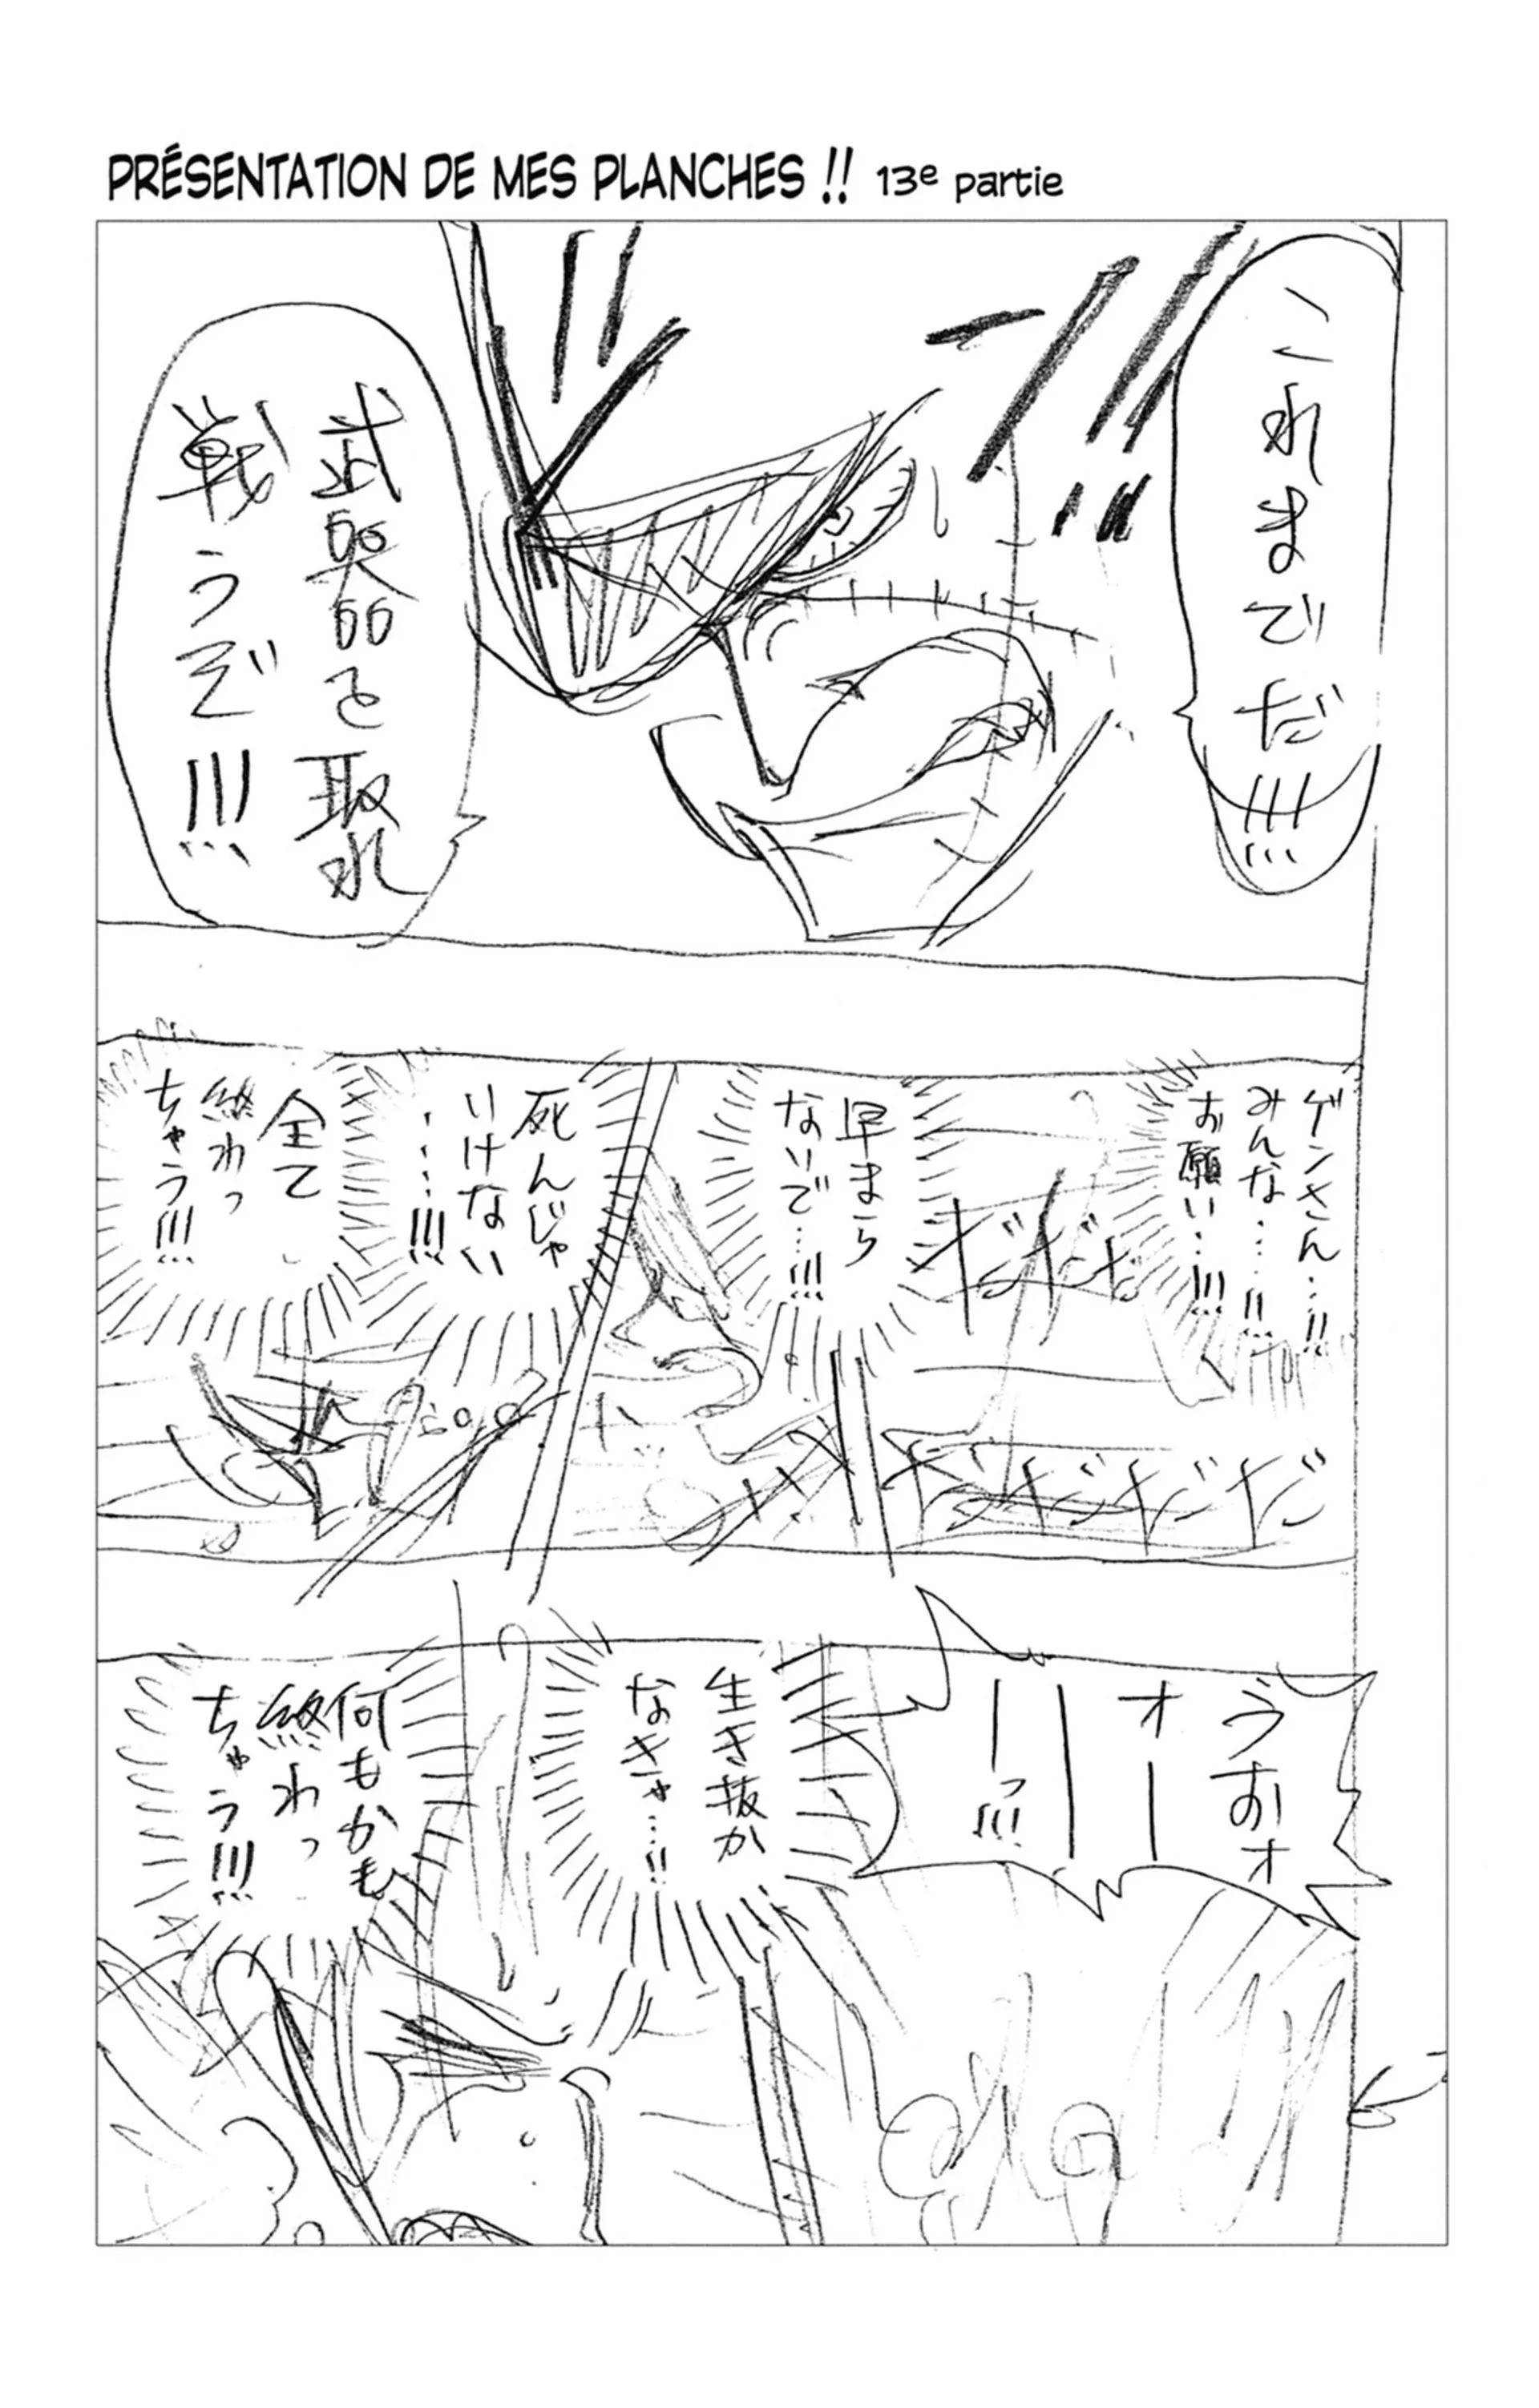 PRÉSENTATION DE MES PLANCHES !! 13e partie
これまでだ!!!
武器を取れ
戦うぞ!!!
ゲンさん…!!
みんな…!!
お願い…!!!
早まら
ないで…!!!
死んじゃ
いけない
…!!!
全て
終わっ
ちゃう!!!
ダダダ
ダダダダ
うおォ
オー
ー
ーっ!!!
生き抜か
なきゃ…!!
何もかも
終わっ
ちゃう!!!